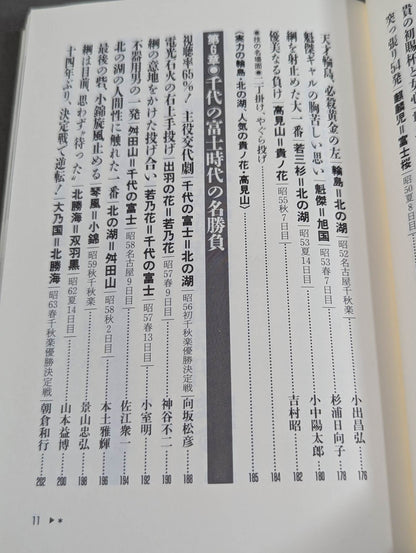 突っ張り54発 麒麟児＝富士桜
天才輪島、必殺黄金の左 輪島＝北の湖 ｜昭52名古屋千秋楽｜ 小出昌弘 176
魁傑ギャルの胸苦しい思い 魁傑＝旭国 ｜昭53春7日目｜ 杉浦日向子 178
綱を射止めた大一番 若三杉＝北の湖 ｜昭53夏13日目｜ 小中陽太郎 180
優美なる負け 高見山＝貴ノ花 ｜昭55秋7日目｜ 吉村昭 182
●技の名場面● 二丁掛け、やぐら投げ 184
〈実力の輪島・北の湖、人気の貴ノ花・高見山〉 185
第6章●千代の富士時代の名勝負
視聴率65％！ 主役交代劇 千代の富士＝北の湖 ｜昭56初千秋楽優勝決定戦｜ 向坂松彦 188
電光石火の右上手投げ 出羽の花＝若乃花 ｜昭57春9日目｜ 神谷不二 190
綱の意地をかけた投げ合い 若乃花＝千代の富士 ｜昭57春13日目｜ 小室明 192
不器用男の一発 舛田山＝千代の富士 ｜昭58名古屋9日目｜ 佐江衆一 194
北の湖の人間性に触れた一番 北の湖＝舛田山 ｜昭58秋2日目｜ 本土雅輝 196
最後の砦、小錦旋風止める 琴風＝小錦 ｜昭59秋千秋楽｜ 景山忠弘 198
綱は目前、思わず〝待った〟 北勝海＝双羽黒 ｜昭62夏14日目｜ 山本益博 200
十四年ぶり、決定戦で逆転！ 大乃国＝北勝海 ｜昭63春千秋楽優勝決定戦｜ 朝倉和行 202
11 ▶＊